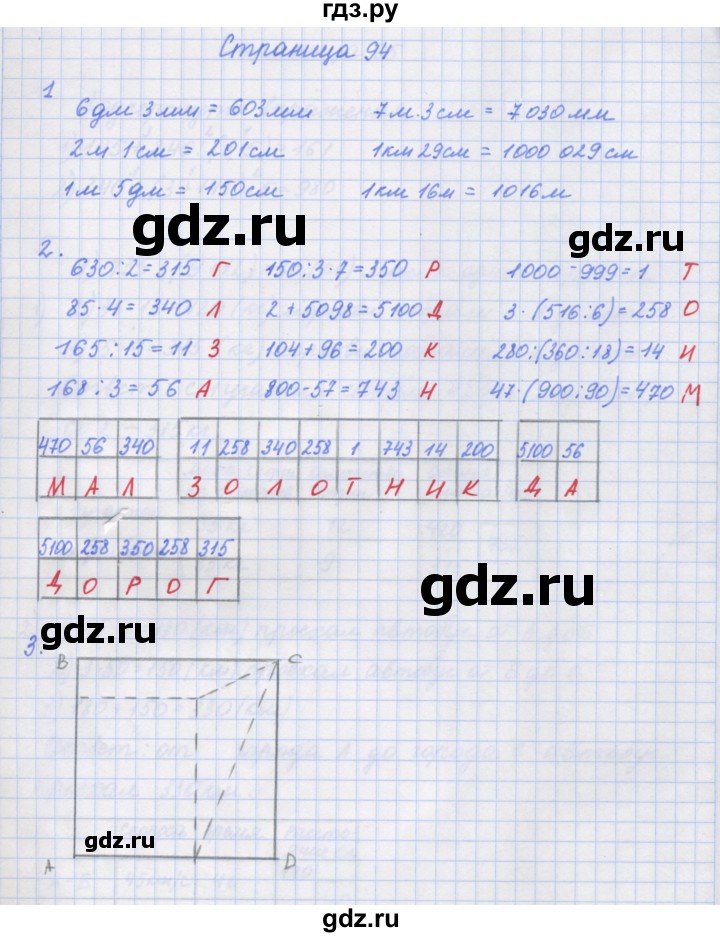 гдз.ру
Страница 94
gdz.ru
1
6дм 3мм = 603мм 7м 3см = 7030мм
2м 1см = 201см 1км 29см = 1000 029см
1м 5дм = 150см 1км 16м = 1016м
gdz.ru gdz.ru
2.
630:2=315 Г 150:3·7=350 Р 1000-999=1 Т
85·4=340 Л 2+5098=5100 Д 3·(516:6)=258 О
165:15=11 З 104+96=200 К 280:(360:18)=14 И
168:3=56 А 800-57=743 Н 47·(900:90)=470 М
470 56 340 11 258 340 258 1 743 14 200 5100 56
М А Л З О Л О Т Н И К Д А
gdz.ru
5100 258 350 258 315
Д О Р О Г
gdz.ru gdz.ru
3.
B C
gdz.ru
gdz.ru
A D
gdz.ru